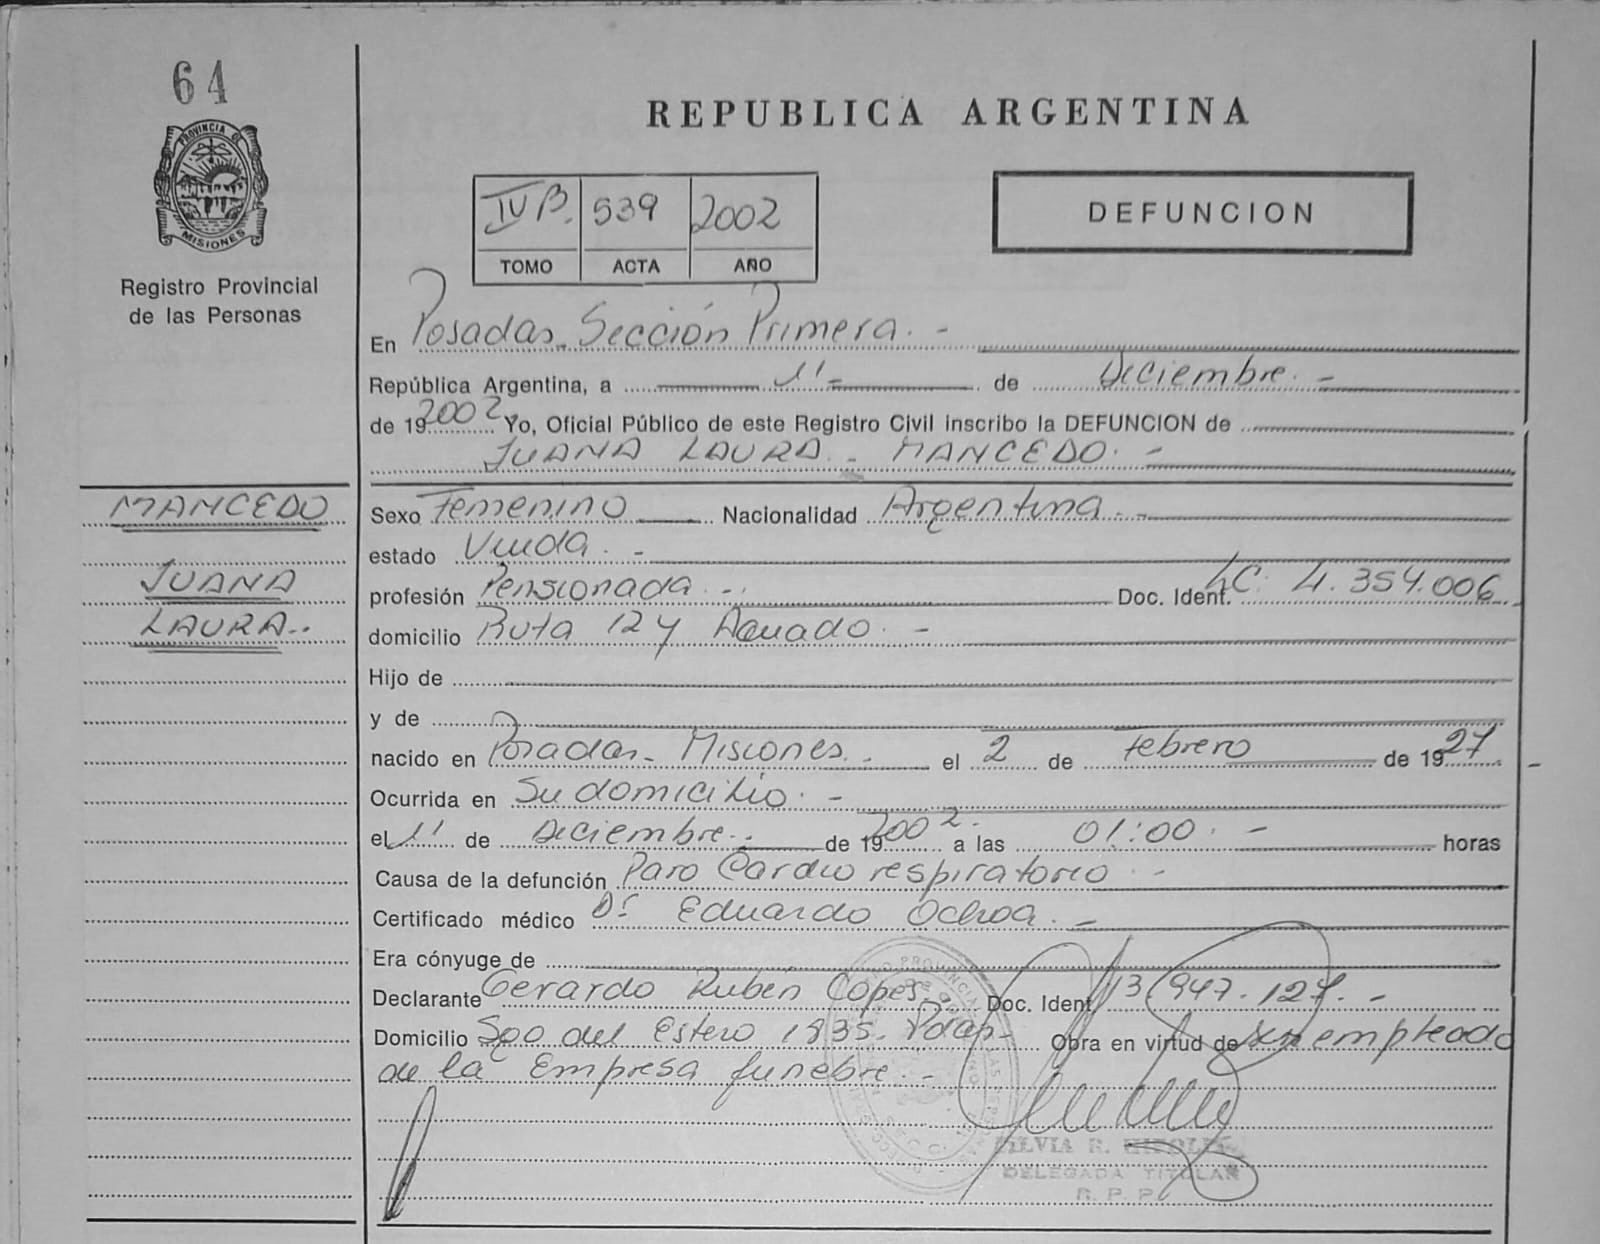 64
PROVINCIA DE
MISIONES
Registro Provincial
de las Personas
REPUBLICA ARGENTINA
IV B. 539 2002
TOMO ACTA AÑO
DEFUNCION
En Posadas. Sección Primera. -
República Argentina, a 11 - de Diciembre. -
de 19 2002 Yo, Oficial Público de este Registro Civil inscribo la DEFUNCION de
JUANA LAURA - MANCEDO. -
MANCEDO
JUANA
LAURA..
Sexo Femenino Nacionalidad Argentina. -
estado Viuda. -
profesión Pensionada. - Doc. Ident. LC. 4.354.006
domicilio Ruta 12 y Aguado. -
Hijo de
y de
nacido en Posadas - Misiones. - el 2 de Febrero de 19 27 -
Ocurrida en Su domicilio. -
el 11 de Diciembre. - de 19 2002. a las 01:00. - horas
Causa de la defunción Paro Cardio respiratorio -
Certificado médico Dr Eduardo Ochoa. -
Era cónyuge de
Declarante Gerardo Rubén Copes. Doc. Ident 13.947.127. -
Domicilio Sgo del Estero 1835. Pdas - Obra en virtud de ser empleado
de la Empresa funebre. -
SILVIA R.
DELEGADA TITULAR
R. P. P.